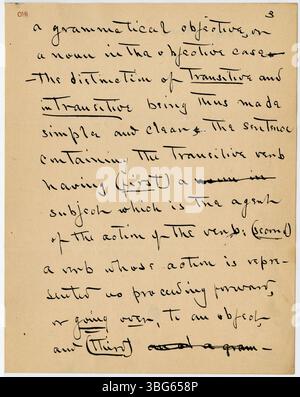 3
a grammatical objective, or
a noun in the objective case
the distinction of transitive and
intransitive being thus made
simple and clear. The sentence
containing the transitive verb
having (first) a noun in
subject which is the agent
of the action of the verb; (second)
a verb whose action is repre-
sented as proceeding forward,
or going over, to an object,
and (third) an at a gram-
alamy
Image ID: 3BG658P
www.alamy.com